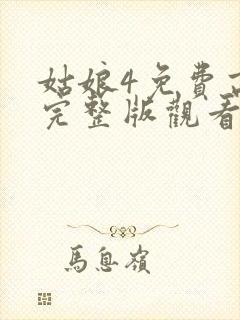 姑娘4免費高
完整版觀看
馬息嶺